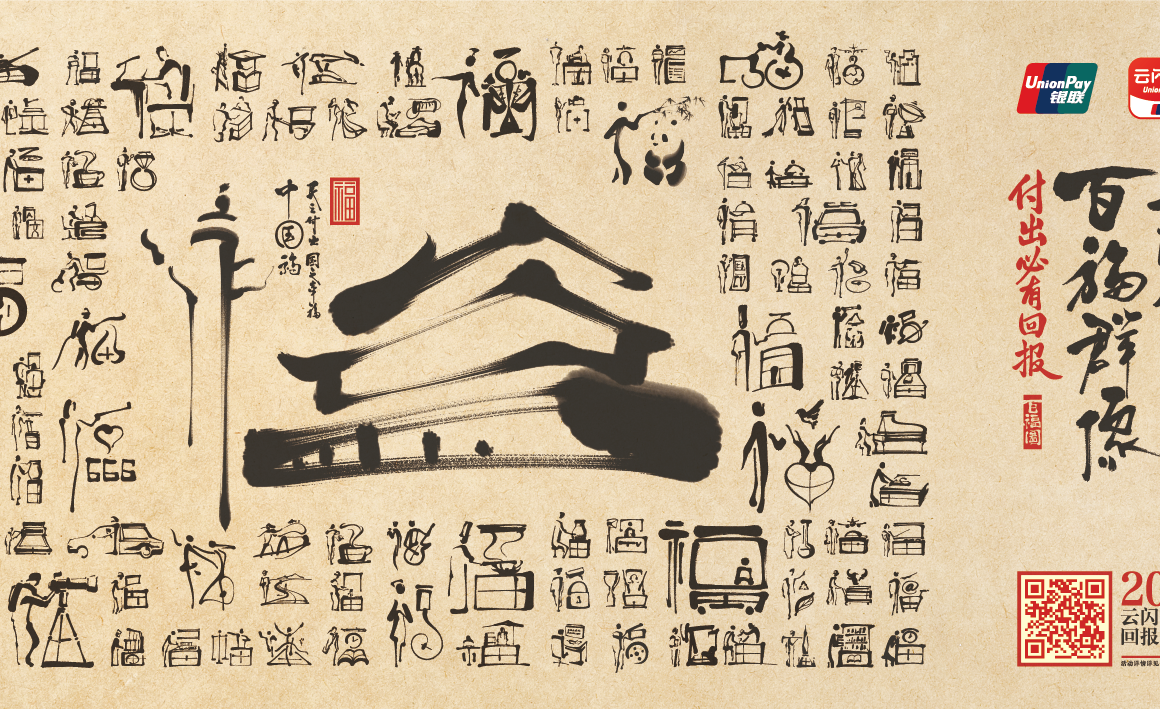 UnionPay
银联
云闪
Union
百福群像
付出必有回报
百福图
中国福
天之付出国之幸福
福
666
20
云闪
回报